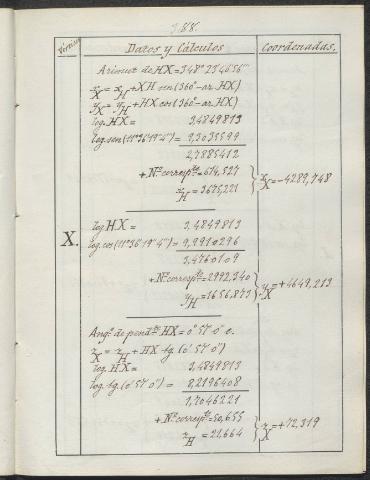 188.
Vértices
Datos y Cálculos
Coordenadas.
Azimut de HX = 348° 23' 40" 56'''
x_X = x_H + XH sen (360° - az. HX)
y_X = y_H + HX cos (360° - az. HX)
log. HX = 3,4849813
log. sen (11° 36' 19" 4''') = 9,3035599
2,7885412
+ Nº. correspte = 614,527
x_H = 3675,221
x_X = -4289,748
X.
log HX = 3,4849813
log. cos (11° 36' 19" 4''') = 9,9910296
3,4760109
+ Nº correspte = 2992,340
y_H = 1656,873
y_X = +4649,213
Ang.º de pend.te HX = 0° 57' 0" 0.
z_X = z_H + HX tg. (0° 57' 0")
log. HX = 3,4849813
log. tg. (0° 57' 0") = 8,2196408
1,7046221
+ Nº. correspte = 50,655
z_H = 21,664
z_X = +72,319